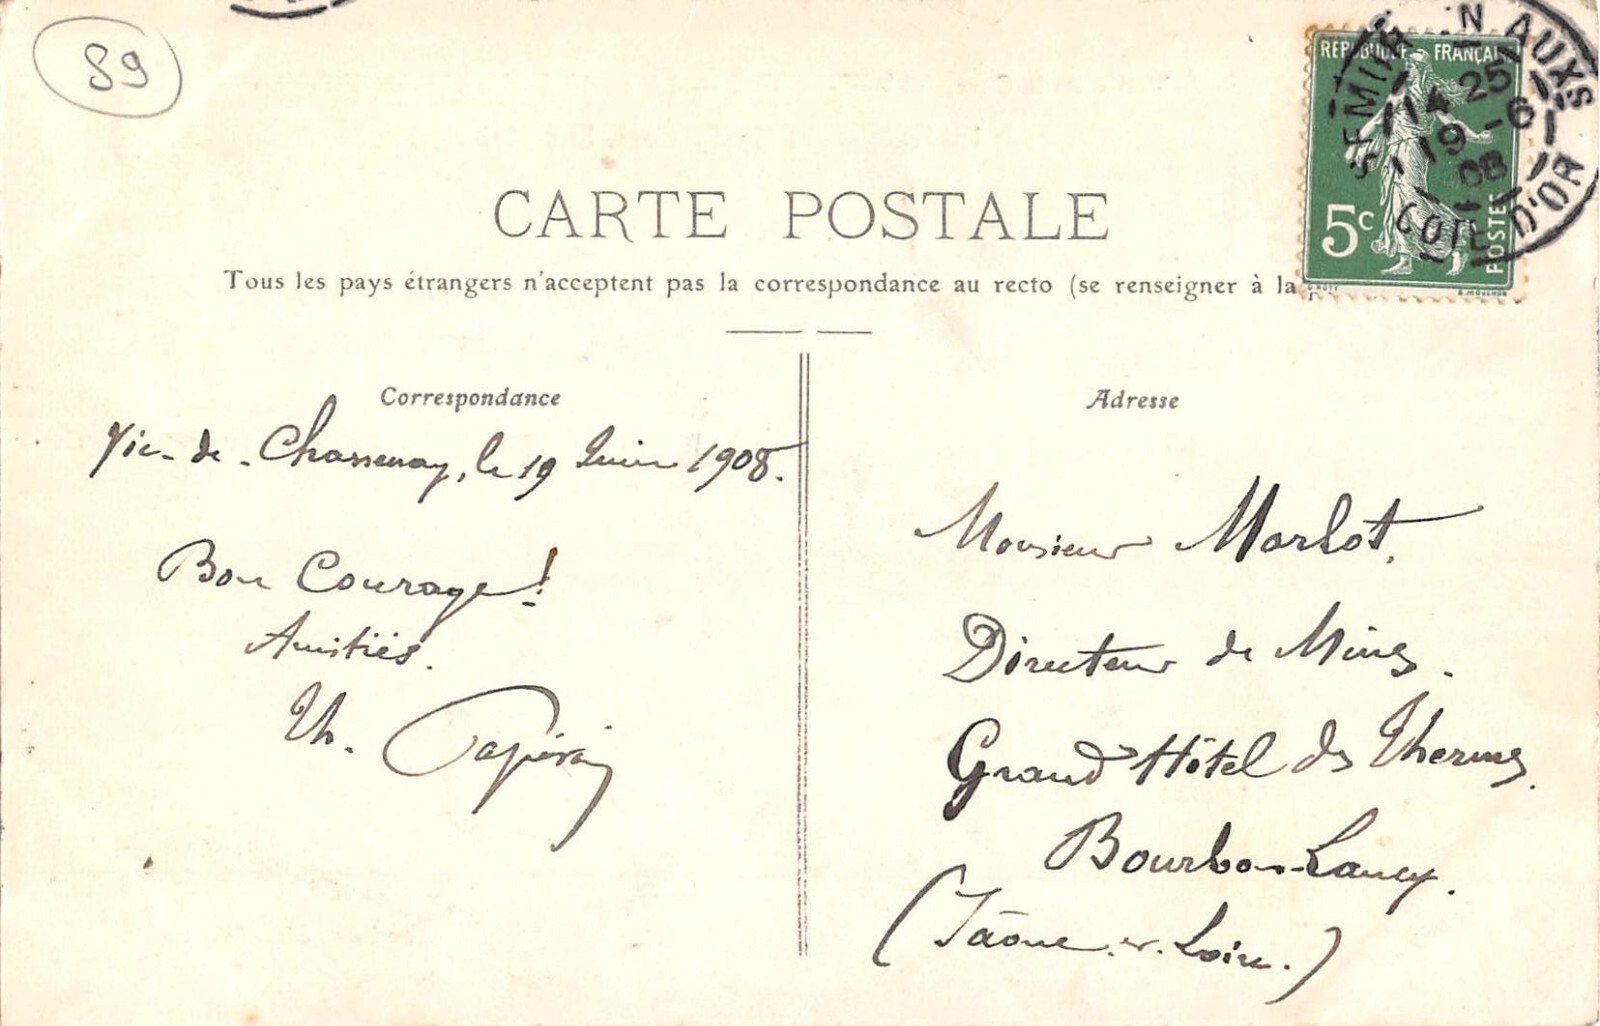 89
CARTE POSTALE
Tous les pays étrangers n'acceptent pas la correspondance au recto (se renseigner à la
RÉPUBLIQUE FRANÇAISE
5c
POSTES
SEMUR-EN-AUXOIS
14 25
19 -6
08
COTE D'OR
Correspondance
Vic-de-Chassenay, le 19 Juin 1908.
Bon Courage!
Amitiés.
Th.
Adresse
Monsieur Marlot,
Directeur de Mines.
Grand Hôtel des Thermes.
Bourbon-Lancy.
(Saône-et-Loire.)